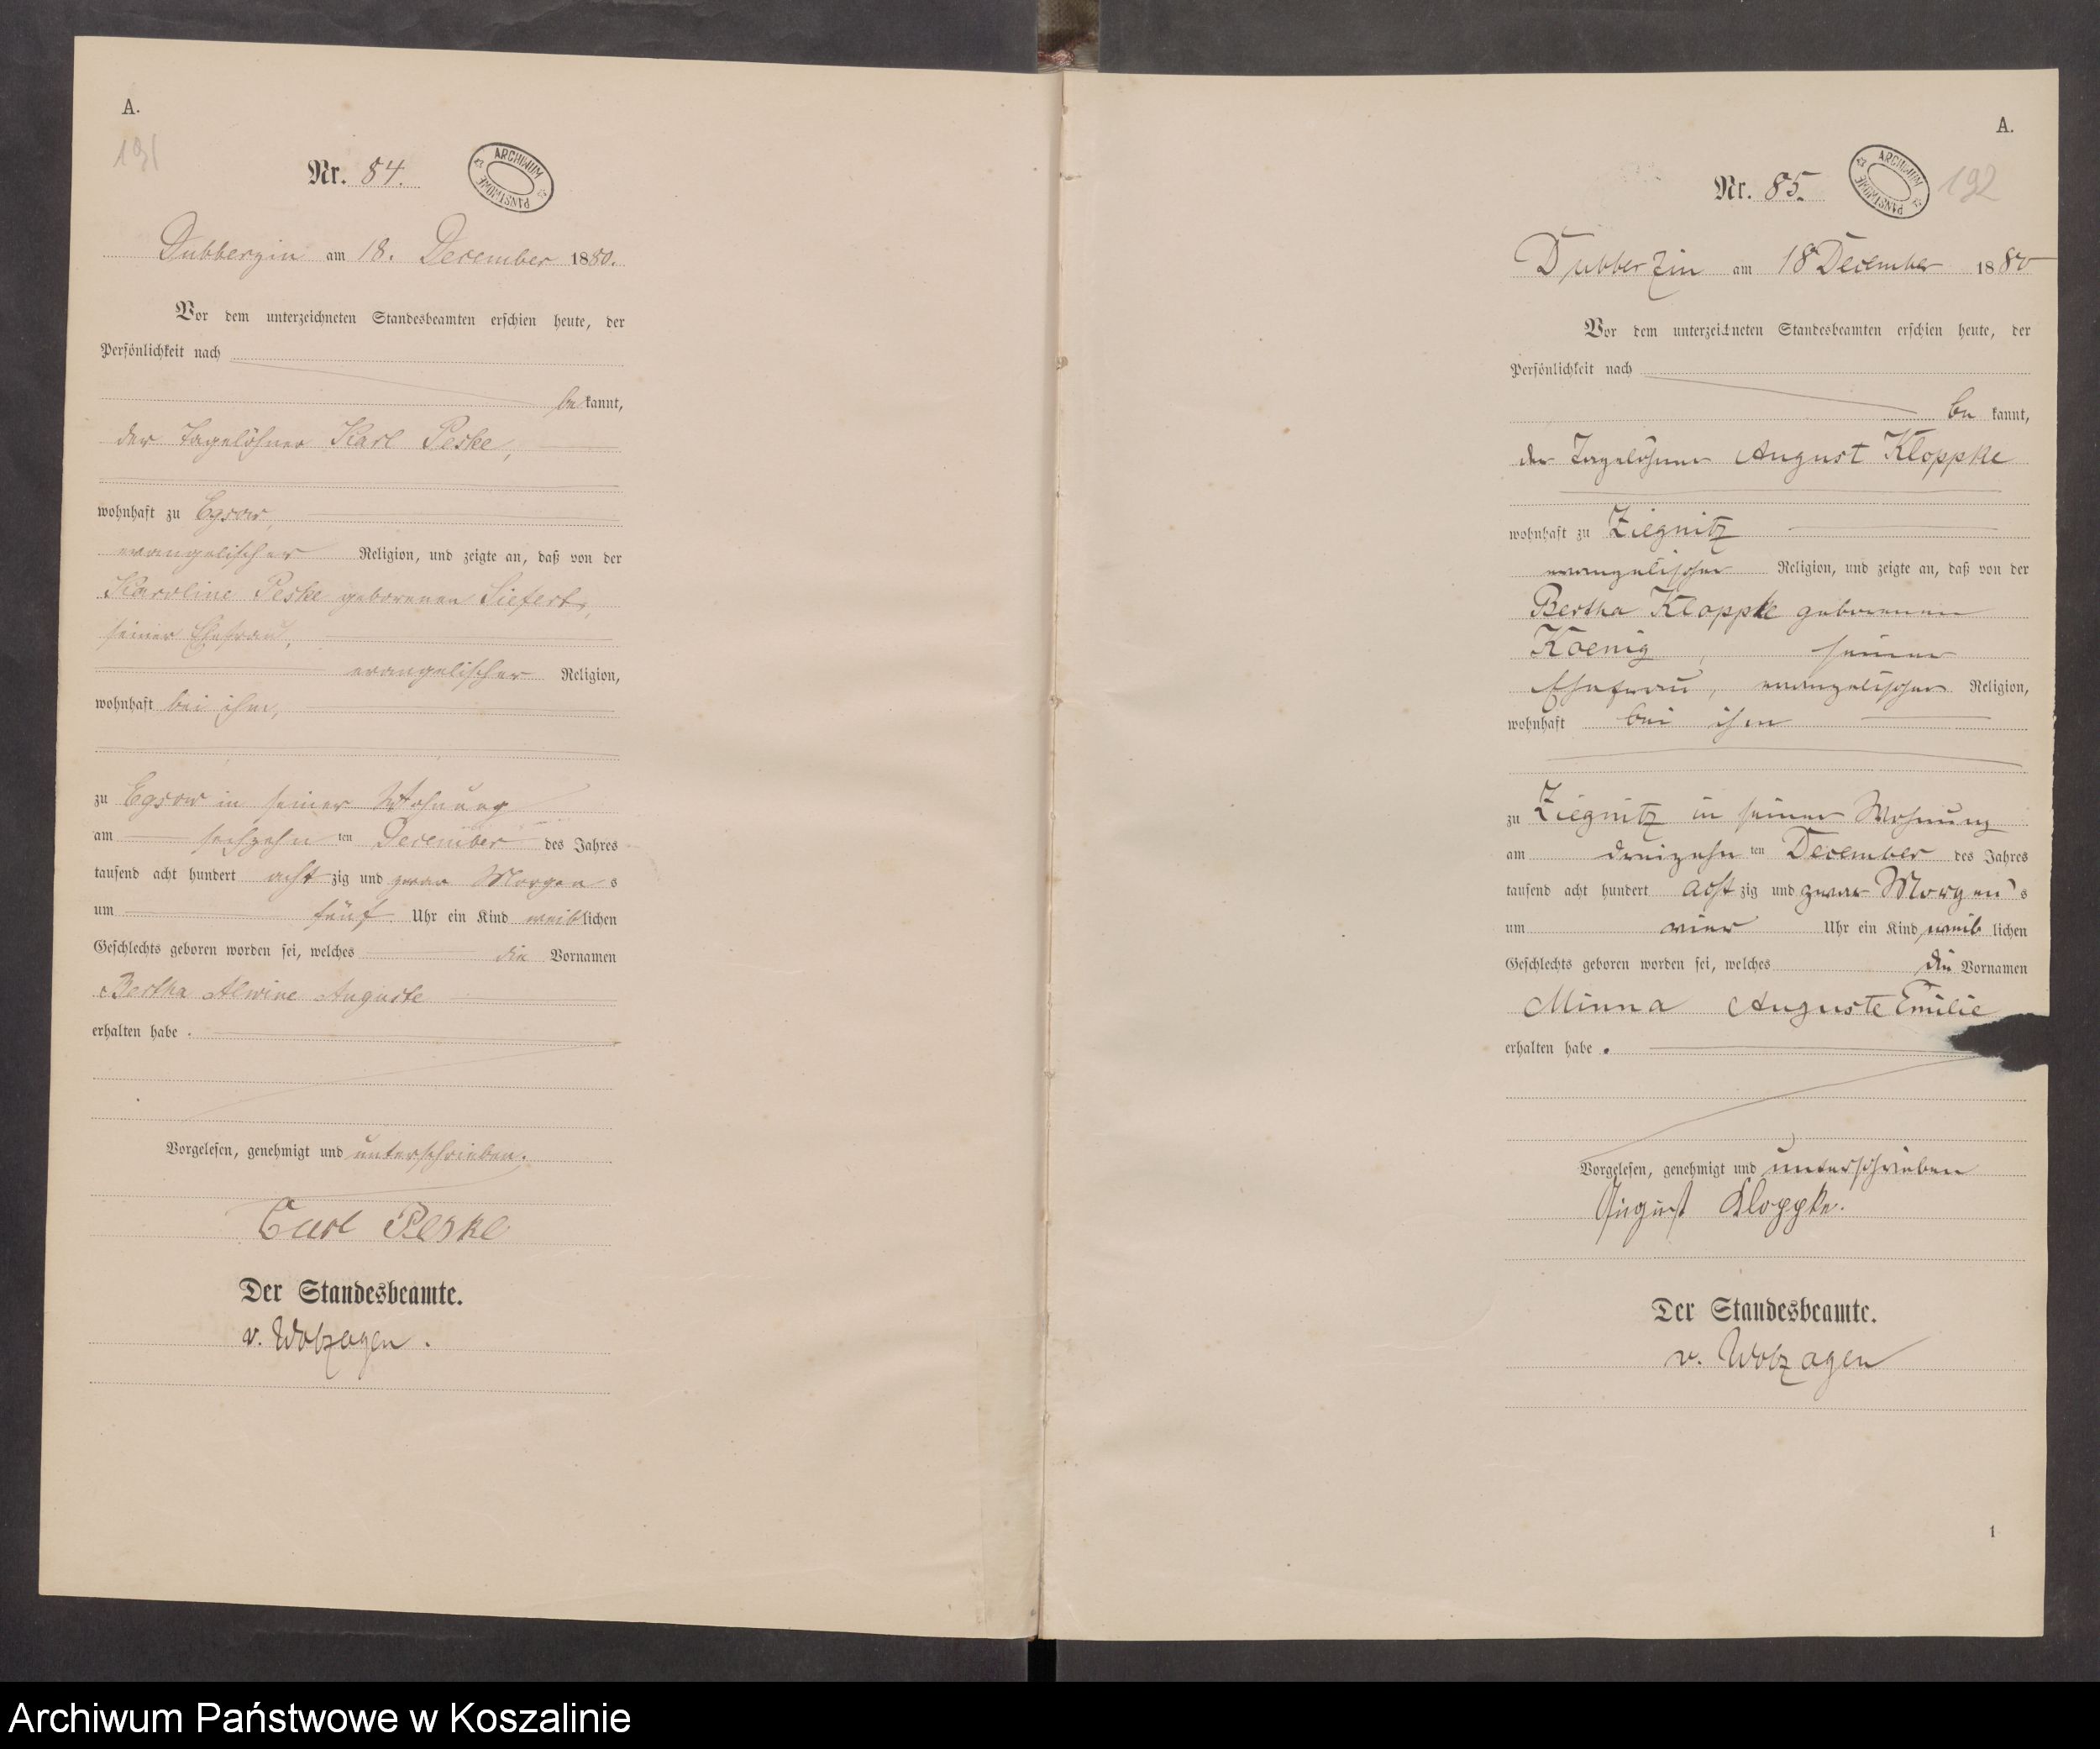 A.
191
Nr. 84.
ARCHIWUM PAŃSTWOWE
Dubberzin am 18. December 1880.
Vor dem unterzeichneten Standesbeamten erschien heute, der
Persönlichkeit nach
bekannt,
der Tagelöhner Karl Peske,
wohnhaft zu Egsow,
evangelischer Religion, und zeigte an, daß von der
Karoline Peske geborenen Siefert,
seiner Ehefrau,
evangelischer Religion,
wohnhaft bei ihm,
zu Egsow in seiner Wohnung
am sechzehn ten December des Jahres
tausend acht hundert acht zig und zwar Morgens
um fünf Uhr ein Kind weiblichen
Geschlechts geboren worden sei, welches die Vornamen
Bertha Alwine Auguste
erhalten habe.
Vorgelesen, genehmigt und unterschrieben.
Carl Peske
Der Standesbeamte.
v. Wolzogen.
A.
192
Nr. 85.
ARCHIWUM PAŃSTWOWE
Dubberzin am 18 December 1880
Vor dem unterzeichneten Standesbeamten erschien heute, der
Persönlichkeit nach
be kannt,
der Tagelöhner August Kloppke
wohnhaft zu Ziegnitz
evangelischer Religion, und zeigte an, daß von der
Bertha Kloppke geborenen
Koenig, seiner
Ehefrau, evangelischer Religion,
wohnhaft bei ihm
zu Ziegnitz in seiner Wohnung
am dreizehn ten December des Jahres
tausend acht hundert acht zig und zwar Morgen's
um vier Uhr ein Kind weib lichen
Geschlechts geboren worden sei, welches die Vornamen
Minna Auguste Emilie
erhalten habe.
Vorgelesen, genehmigt und unterschrieben
August Kloppke.
Der Standesbeamte.
v. Wolzogen
1
Archiwum Państwowe w Koszalinie